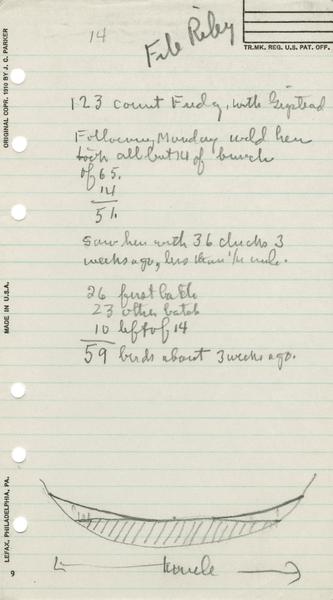 14
File Riley
TR.MK. REG. U.S. PAT. OFF.
ORIGINAL COPR. 1910 BY J. C. PARKER
123 count Fridy, with Gipstead
Following Monday wild hen
took all but 14 of bunch
of 65.
14
51.
Saw hen with 36 chicks 3
weeks ago, less than 1/4 mile.
26 first batch
23 other batch
10 left of 14
59 birds about 3 weeks ago.
MADE IN U.S.A.
LEFAX, PHILADELPHIA, PA.
9